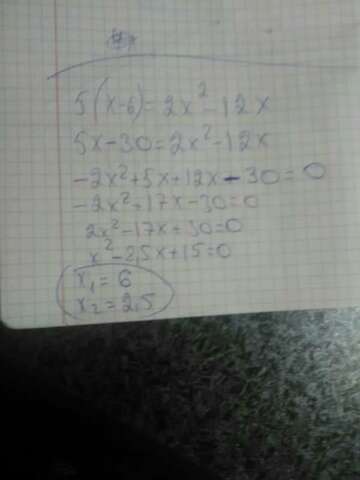 5(x-6)=2x²-12x
5x-30=2x²-12x
-2x²+5x+12x-30=0
-2x²+17x-30=0
2x²-17x+30=0
x²-2,5x+15=0
x₁=6
x₂=2,5